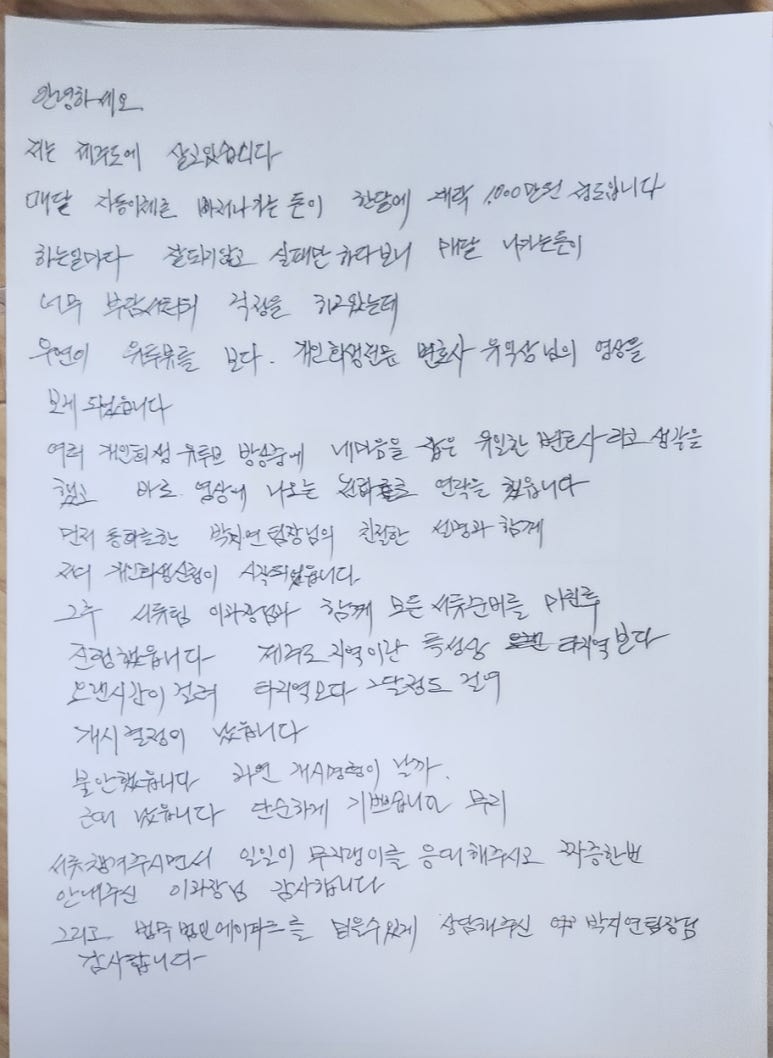 안녕하세요
저는 제주도에 살고있습니다
매달 자동이체로 빠져나가는 돈이 한달에 대략 1,000만원 정도입니다
하는일마다 잘되기않고 실패만 하다보니 매달 나가는돈이
너무 부담시러워 걱정을 하고있는데
우연이 유투뷰를 보다. 개인회생전문 변호사 유익상님의 영상을
보게되었습니다
여러 개인회생 유투브 방송중에 내마음을 잡은 유일한 변호사라고 생각을
했고 바로 영상에 나오는 전화로 연락을 했읍니다
먼저 통화를한 박지연팀장님의 친절한 설명과 함께
저의 개인회생신청이 시작되었읍니다
그후 서류팀 이과장님과 함께 모든 서류준비를 마친후
진행했읍니다 제주도 지역이란 특성상 타지역보다
오랜시간이 걸려 타지역보다 2달정도 걸여
개시결정이 났읍니다
불안했읍니다 과연 개시명령이 날까.
근데 났읍니다 단순하게 기쁘습니다 무리
서류챙겨주시면서 일일이 무지랭이를 응대해주시고 짜증한번
안내주신 이과장님 감사합니다
그리고 법무법인에이파트를 믿을수있게 상담해주신 박지연팀장님
감사합니다